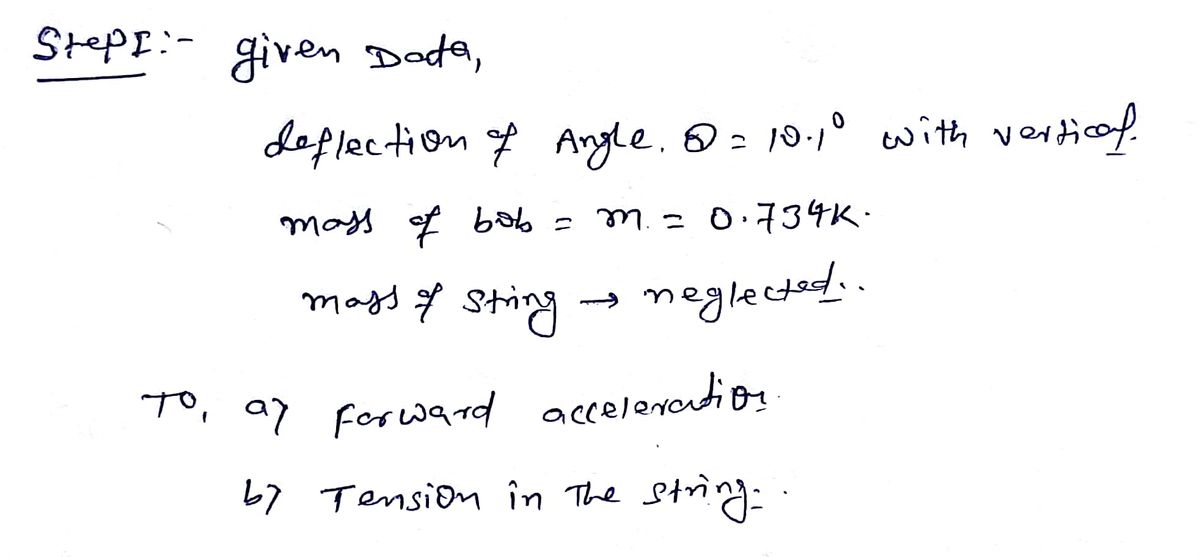 Step I :- given Data,
deflection of Angle. θ = 10.1° with vertical.
mass of bob = m. = 0.734K.
mass of string → neglected..
To, a) forward acceleration.
b) Tension in The string. .